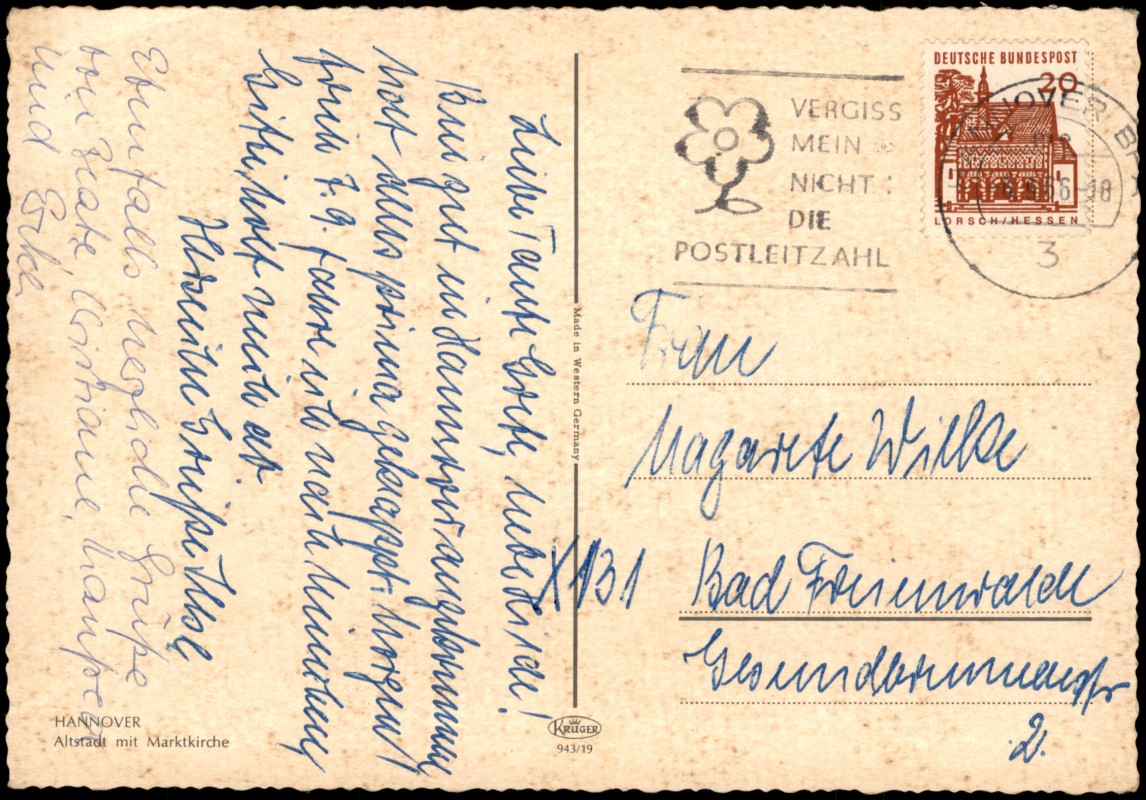 Liebe Tante Grete, liebe Heide!
Bin gut in Hannover angekommen,
hat alles prima geklappt. Morgen
früh 7.9. fahre ich nach München
Gritli holt mich ab.
Herzliche Grüße Ilse
Ebenfalls herzliche Grüße
von Beate, Christiane,
und Erika
HANNOVER
Altstadt mit Marktkirche
Made in Western Germany
KRÜGER
943/19
VERGISS
MEIN
NICHT:
DIE
POSTLEITZAHL
DEUTSCHE BUNDESPOST
20
LORSCH/HESSEN
HANNOVER
3
Frau
Magarete Wilke
X 131 Bad Freienwalde
Gesundbrunnenstr
2.